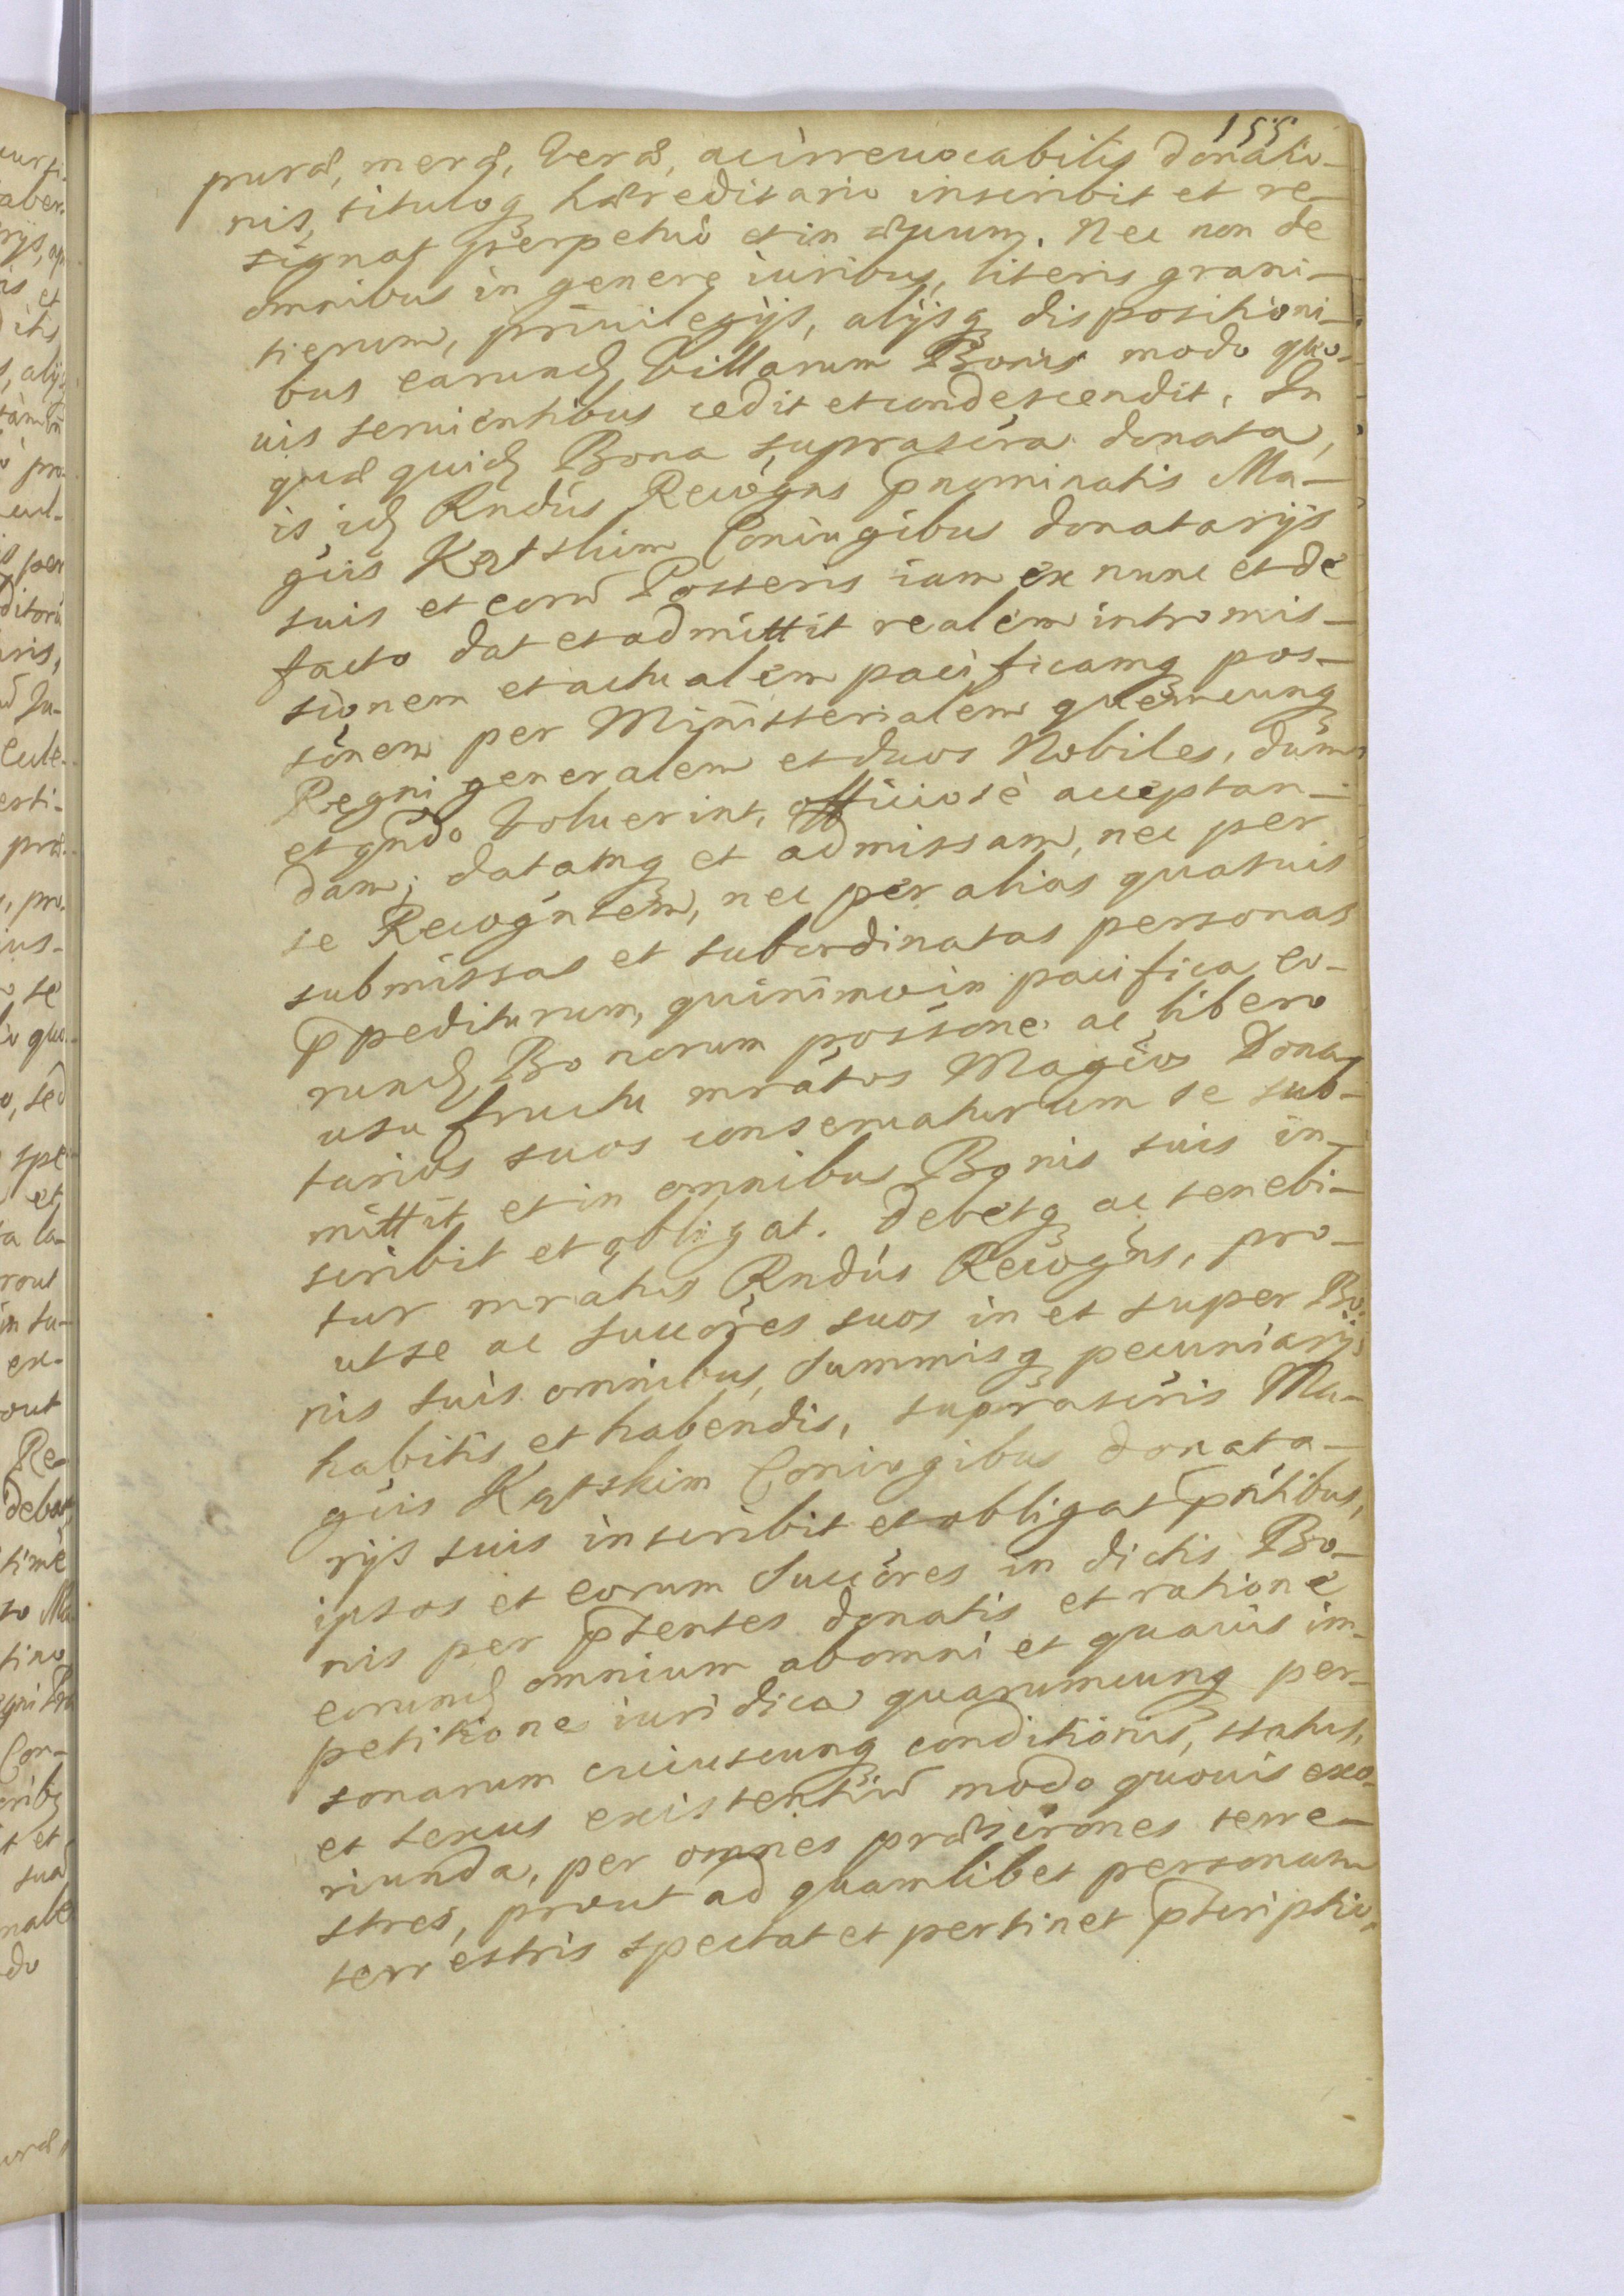 155
puræ, meræ, veræ, ac irreuocabilis donatio-
nis, tituloq hæreditario inscribit et re-
signat perpetuò et in æuum. Nec non de
omnibus in genere iuribus, literis grani-
tierum, priuilegijs, alijsq dispositioni-
bus earund, Villarum Bonis modo quo-
uis seruientibus cedit et condescendit. In
quæ quid, Bona suprascra donata,
is id, Rndus Recogns pnominatis Ma-
gcis Kątskim Coniugibus donatarijs
suis et eorū Posteris iam ex nunc et de
facto dat et admittit realem intromis-
sionem et actualem pacificamq pos-
sonem per Ministerialem quemcunq
Regni generalem et duos Nobiles, dum
et qndo voluerint, officiosè acceptan-
dam; datamq et admissam, nec per
se Recogntem, nec per alias quasuis
submissas et subordinatas personas
ppediturum, quinimo in pacifica eo-
rund, Bonorum possone ac libero
usu fructu mratos Magcos Dona-
tarios suos conseruaturum se sub-
mittit et in omnibus Bonis suis in-
scribit et obligat. Debetq ac tenebi-
tur mratus Rndus Recogns, pro-
ut se ac succores suos in et super Bo-
nis suis omnibus, summisq pecuniarijs
habitis et habendis, suprascris Ma-
gcis Kątskim Coniugibus donata-
rijs suis inscribit et obligat pntibus,
ipsos et eorum Succores in dictis Bo-
nis per ptentes donatis et ratione
eorund, omnium ab omni et quauis im-
petitione iuridica quarumcunq per-
sonarum cuiuscunq conditionis, status,
et sexus existentiū modo quouis exo-
riunda, per omnes præscrones terre-
stres, prout ad quamlibet personam
terrestris spectat et pertinet pscriptio,